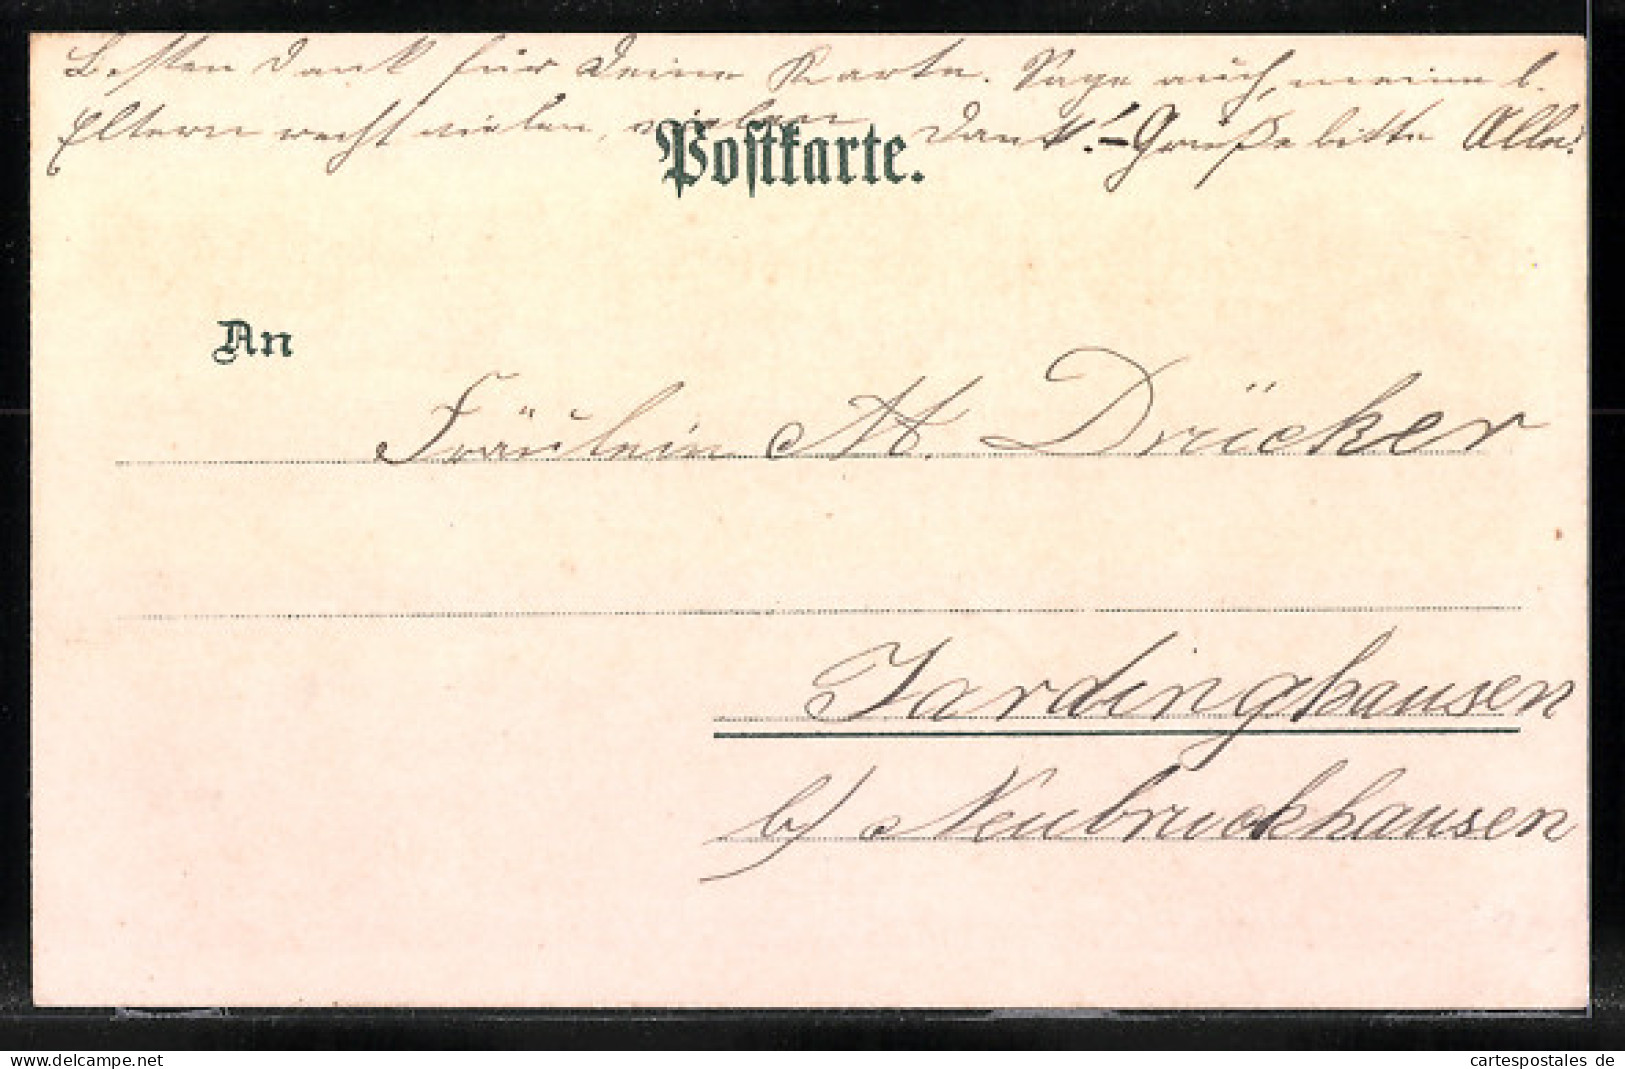 Besten Dank für Deine Karte. Sage auch, meine l.
Eltern recht vielen, vielen Dank! – Grüße bitte Alle!
Postkarte.
An
Fräulein M. Drücker
Jardinghausen
b/ Neubruchhausen
delcampe.net
cartespostales de